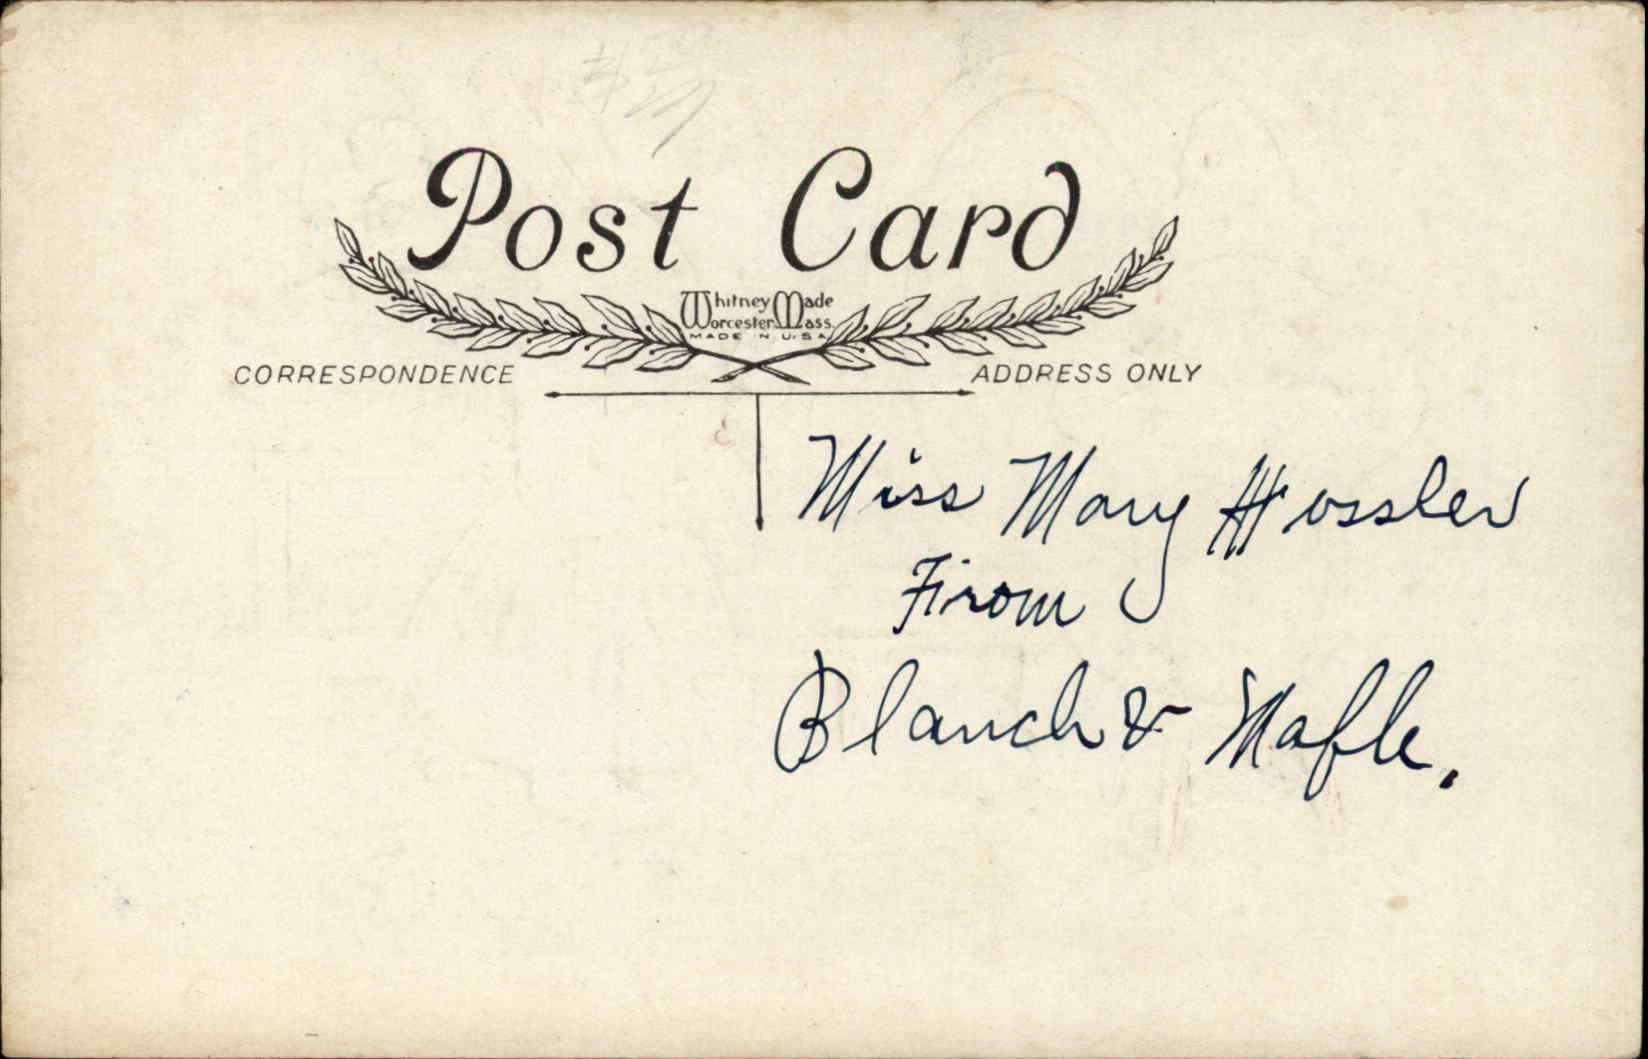 Post Card
Whitney Made
Worcester, Mass.
MADE IN U.S.A
CORRESPONDENCE
ADDRESS ONLY
Miss Mary Hossler
From
Blanch &